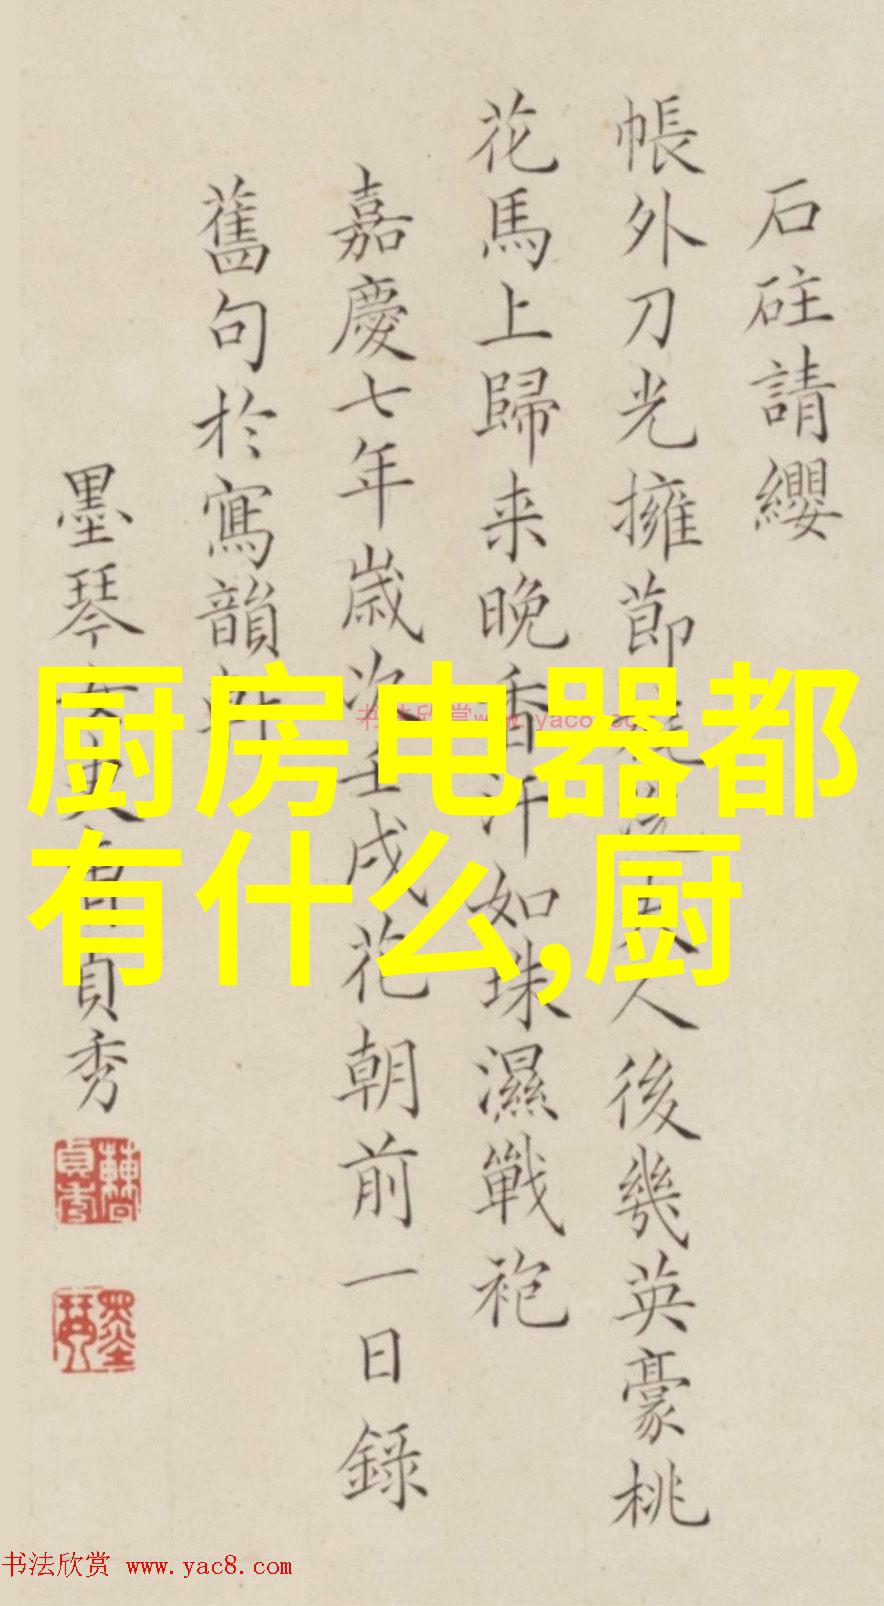 石砫請纓
帳外刀光擁節人後幾英豪桃
花馬上歸来晚香汗如珠濕戰袍
嘉慶七年歲次壬戌花朝前一日錄
舊句於寫韻軒
墨琴女史曹貞秀
厨房电器都
有什么,厨
书法欣赏 www.yac8.com